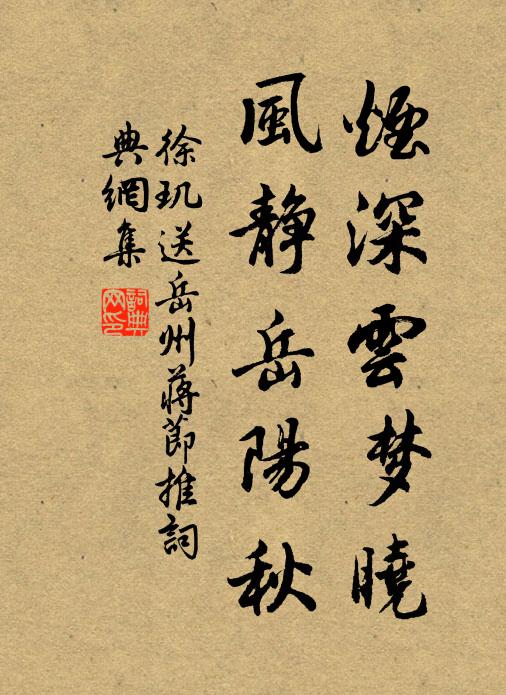 煙深雲梦曉
風静岳陽秋
徐玑送岳州蒋節推詞
典網集
詞典网印